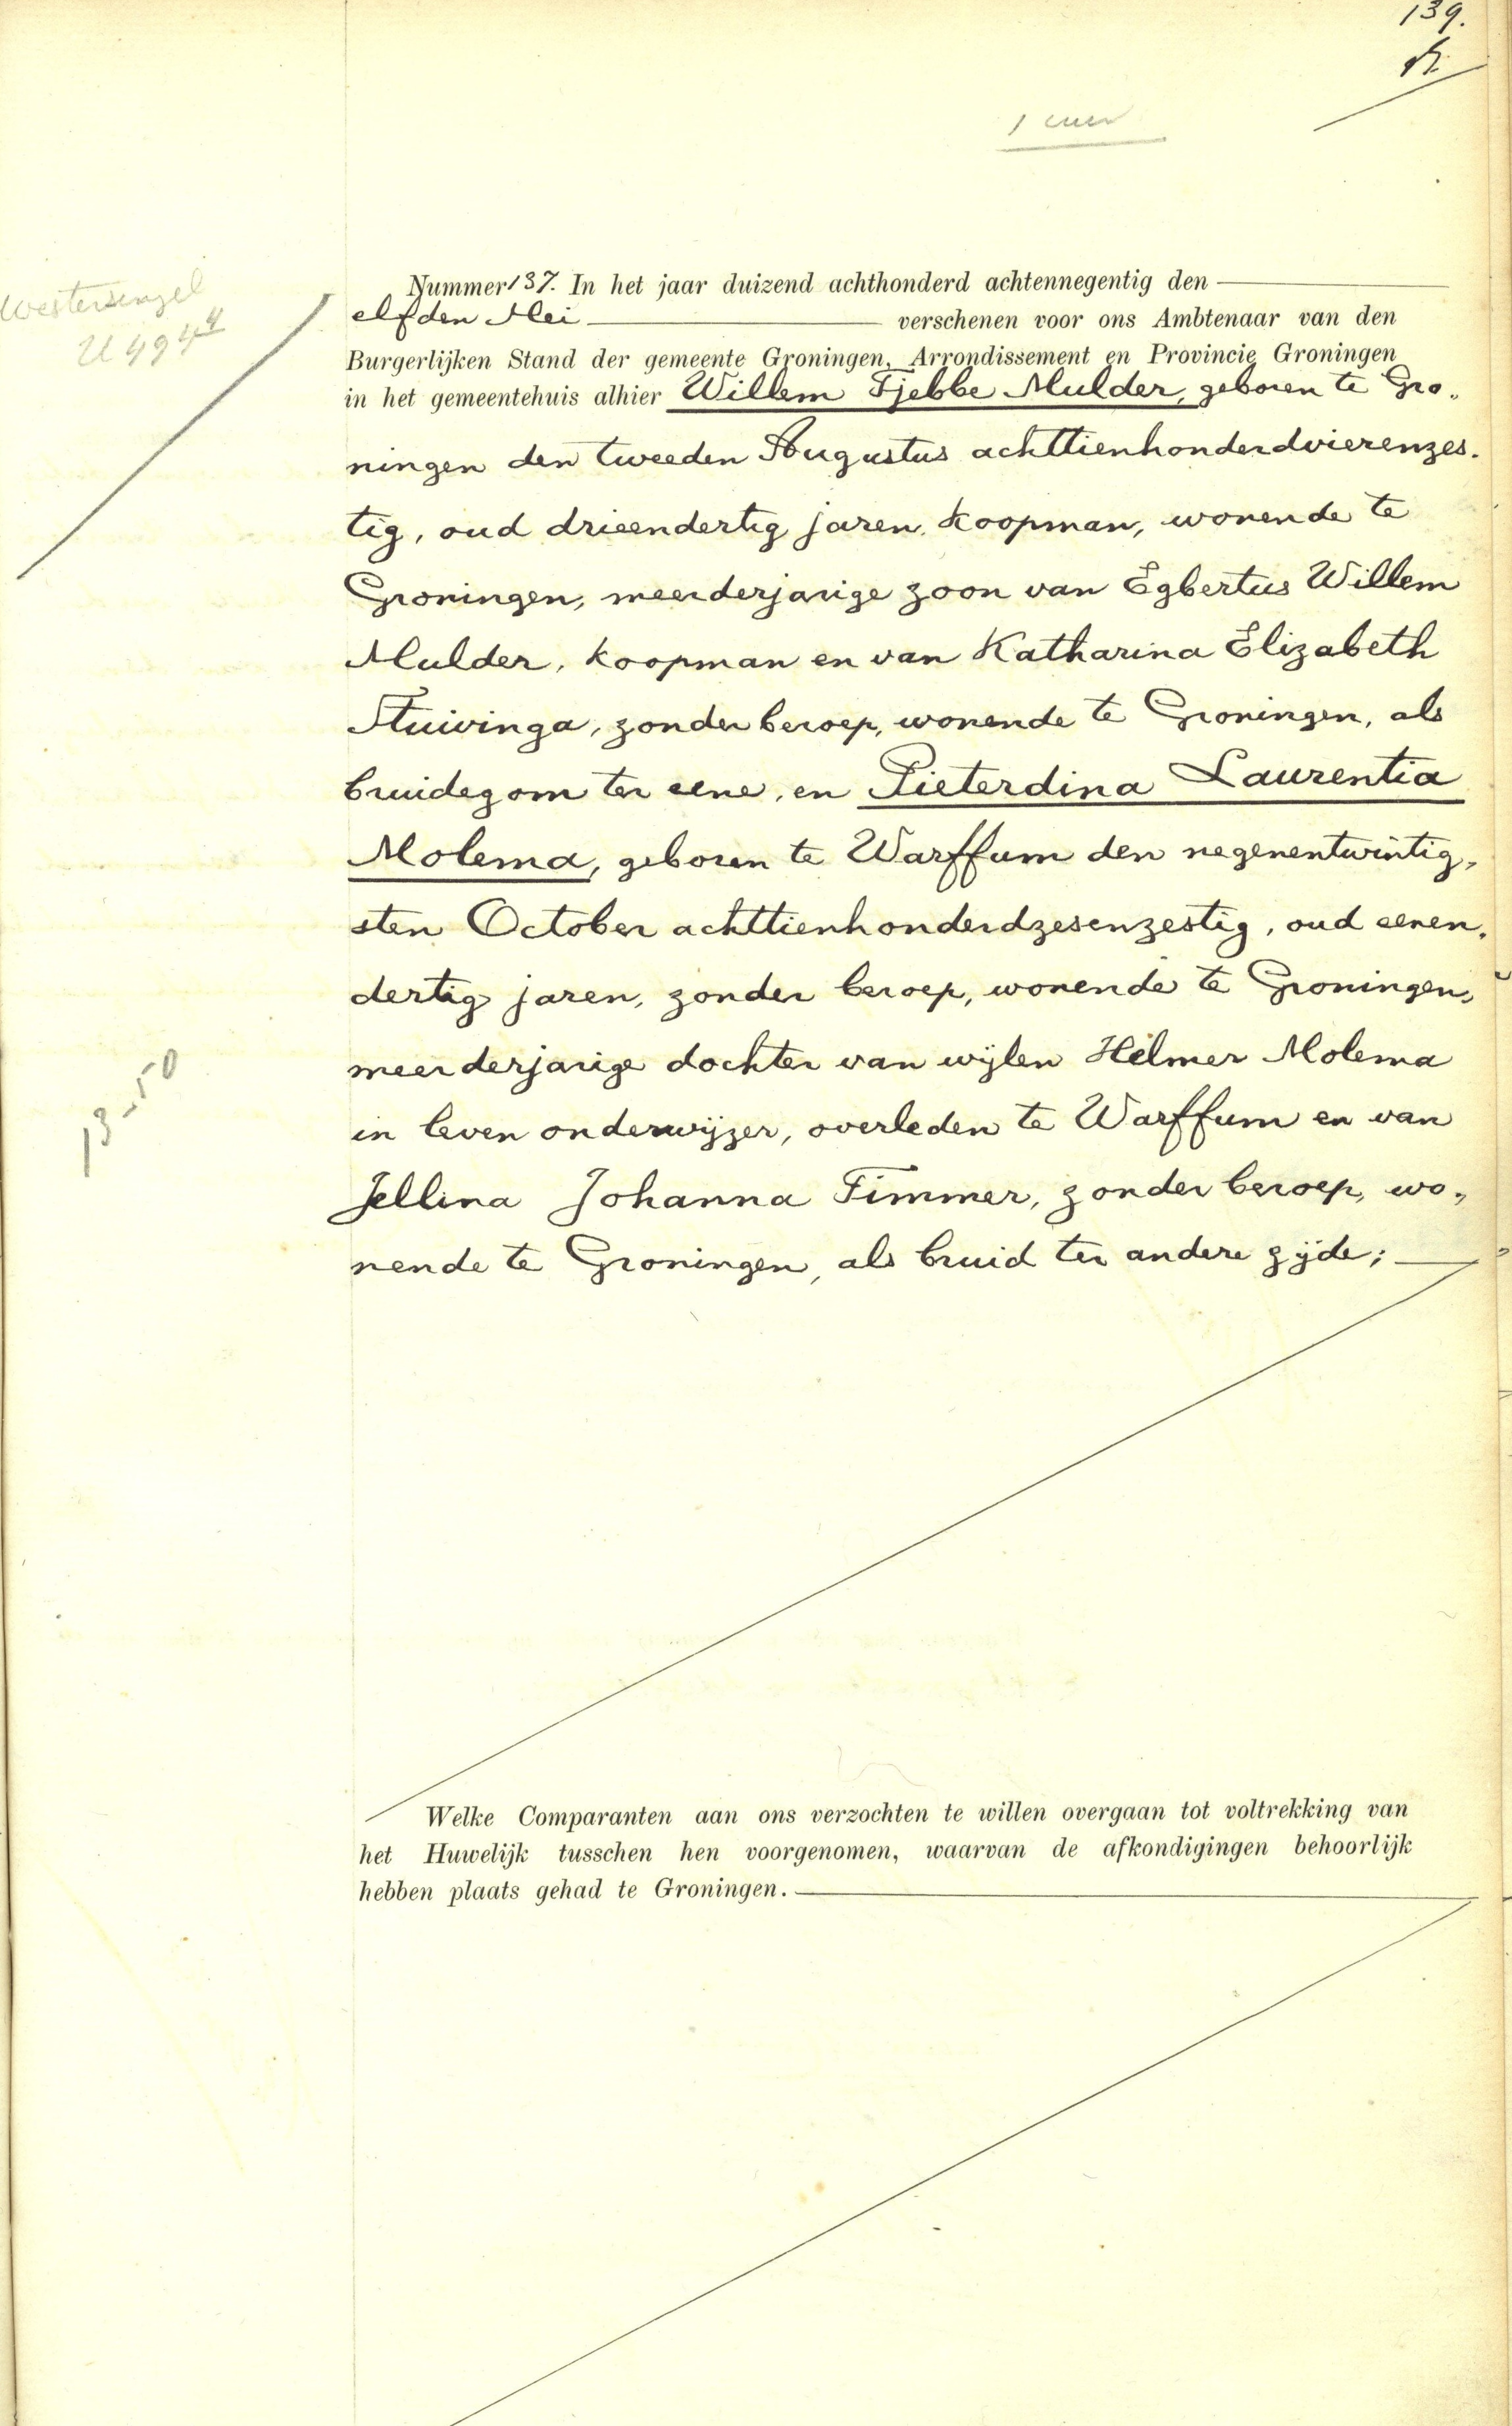 139.
1 uur
Westersingel
Nummer 137. In het jaar duizend achthonderd achtennegentig den
elfden Mei verschenen voor ons Ambtenaar van den
Burgerlijken Stand der gemeente Groningen, Arrondissement en Provincie Groningen
in het gemeentehuis alhier Willem Tjebbe Mulder, geboren te Gro„
ningen den tweeden Augustus achttienhonderdvierenzes„
tig, oud drieendertig jaren, koopman, wonende te
Groningen, meerderjarige zoon van Egbertus Willem
Mulder, koopman en van Katharina Elizabeth
Stuivinga, zonder beroep, wonende te Groningen, als
bruidegom ter eene, en Pieterdina Laurentia
Molema, geboren te Warffum den negenentwintig„
sten October achttienhonderdzesenzestig, oud eenen„
dertig jaren, zonder beroep, wonende te Groningen,
meerderjarige dochter van wijlen Helmer Molema
in leven onderwijzer, overleden te Warffum en van
Jellina Johanna Timmer, zonder beroep, wo„
nende te Groningen, als bruid ter andere zijde;
13-50
Welke Comparanten aan ons verzochten te willen overgaan tot voltrekking van
het Huwelijk tusschen hen voorgenomen, waarvan de afkondigingen behoorlijk
hebben plaats gehad te Groningen.